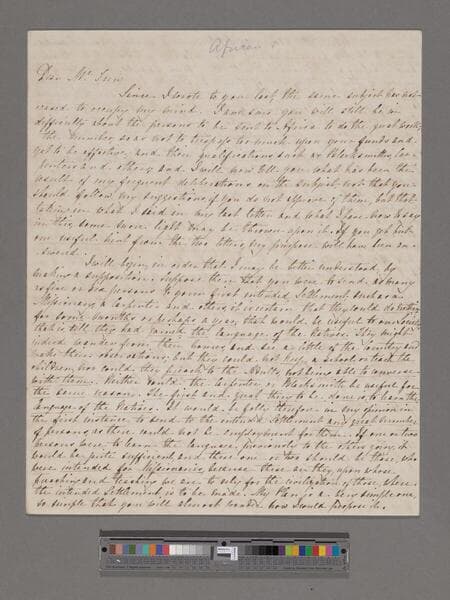 African
Dear Mr Trew
Since I wrote to you last, the same subject has not
ceased to occupy my mind. I am sure you will still be in
difficulty about the persons to be sent to Africa to do the good work,
the number, so as not to trespass too much upon your funds and
yet to be effective, and their qualifications such as Blacksmiths, Car-
penters and others, and I will now tell you what has been the
result of my frequent deliberations on the subject, not that you
should follow my suggestions if you do not approve of them, but that
taking in what I said in my last letter and what I have now to say
in this, some more light may be thrown upon it. If you get but
one useful hint from the two letters my purpose will have been an-
swered.
I will begin, in order that I may be better understood, by
making a supposition. Suppose then that you were to send as many
as five or six persons to your first intended Settlement such as a
Missionary, a Carpenter and others, it is certain that they could do nothing
for some months or perhaps a year, that would be useful to our object
that is till they had learnt the language of the Natives. They might
indeed wander from their homes, and see a little of the Country and
make their observations; but they could not keep a School or teach the
children, nor could they preach to the Adults not being able to converse
with them. Neither could the Carpenter or Blacksmith be useful for
the same reason. The first and great thing to be done is to learn the
language of the Natives. It would be folly therefore in my opinion in
the first instance to send to the intended Settlement any great number
of persons, as there would not be employment for them. If one or two
persons were to learn the language previously to the others going, it
would be quite sufficient and these one or two should be those, who
were intended for Missionaries, because these are they, upon whose
preaching and teaching we are to rely for the civilization of those, where
the intended Settlement is to be made. My Plan is a very simple one,
so simple that you will almost wonder how I could propose it.